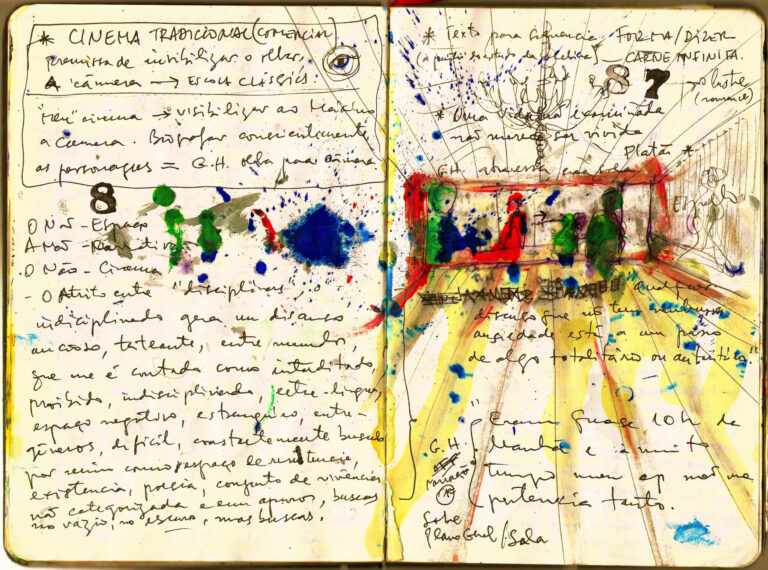 * CINEMA TRADICIONAL (COMERCIAL)
premissa de invibilizar o olhar.
A câmera → ESCOLA CLÁSSICA.
"Meu" cinema → visibilizar ao Máximo
a Câmera. Biografar conscientemente
as personagens = G.H. olha para câmera
8
O Não - Espaço
A Não - Narrativa
O Não - Cinema
- O Atrito entre "disciplinas", o
indisciplinado gera um discurso
ansioso, tateante, entre mundos,
que me é contado como interditado,
proibido, indisciplinado, entre-língua,
espaço negativo, estrangeiro, entre-
gêneros, difícil, constantemente buscado
por mim como espaço de resistência,
existência, poesia, conjunto de vivências
não categorizada e em apuros, buscas
no vazio, no escuro, mas buscas.
* Texto para sequência FORMA/DIZER
CARNE INFINITA.
87
→ o lustre
(romance)
* Uma vida não examinada
não merece ser vivida
Platão *
G.H. atravessa
Espelho
qualquer
discurso que não tem nenhuma
ansiedade está a um passo
de algo totalitário ou autêntico"
"Eram quase 10h da
Manhã e a muito
tempo meu ap não me
pertencia tanto.
G.H.
narração
Sobre
Plano Geral / Sala